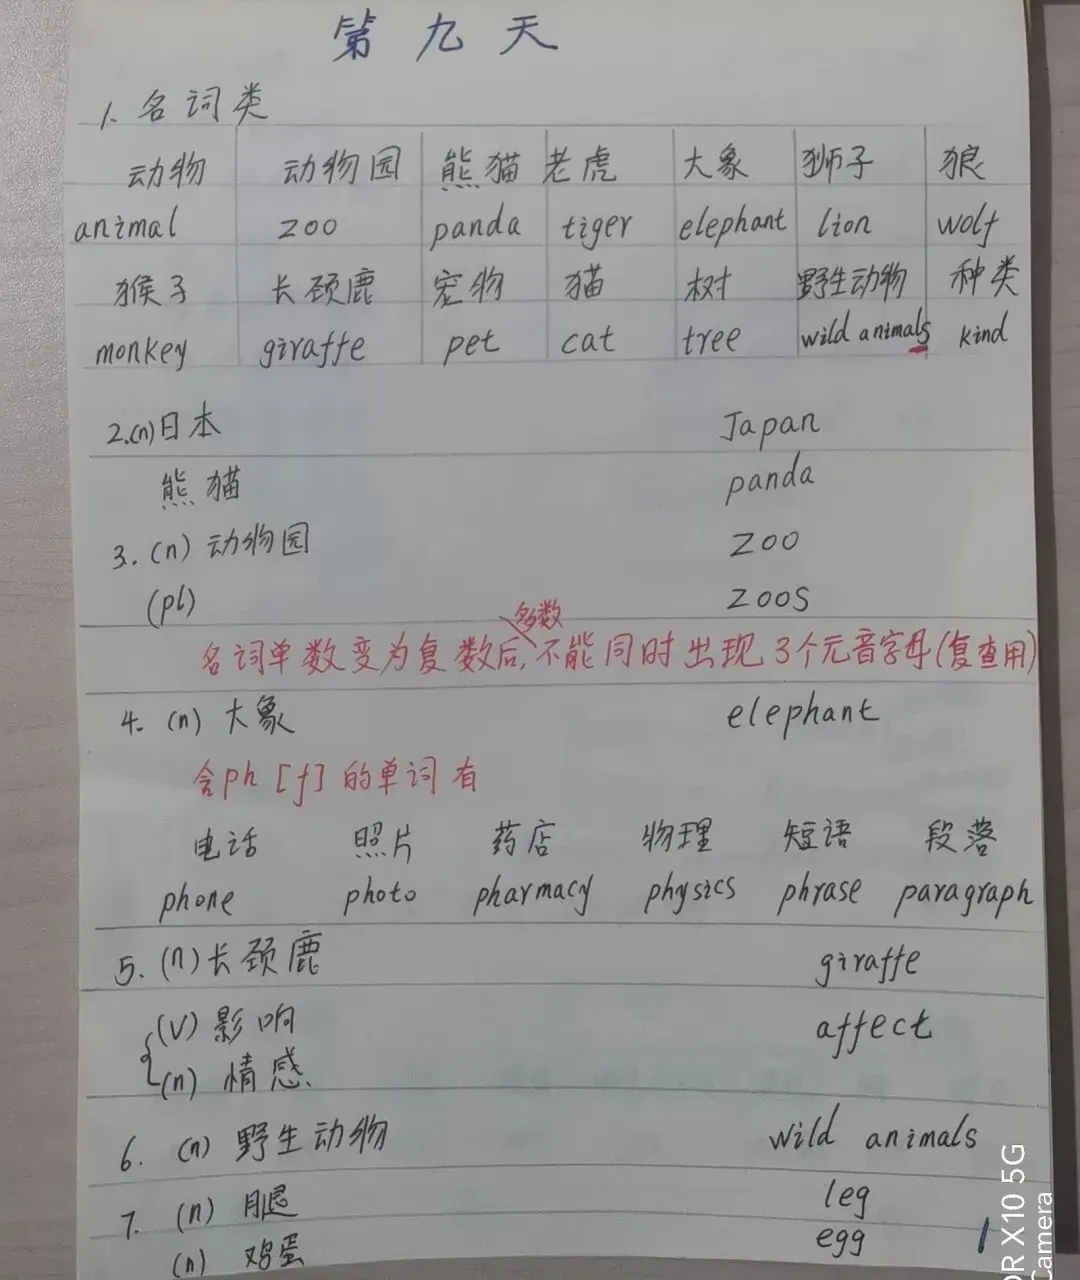 第九天
1. 名词类
动物 动物园 熊猫 老虎 大象 狮子 狼
animal zoo panda tiger elephant lion wolf
猴子 长颈鹿 宠物 猫 树 野生动物 种类
monkey giraffe pet cat tree wild animals kind
2.(n)日本 Japan
熊猫 panda
3. (n) 动物园 zoo
(pl) zoos
多数
名词单数变为复数后,不能同时出现3个元音字母(复查用)
4. (n) 大象 elephant
含ph [f] 的单词有
电话 照片 药店 物理 短语 段落
phone photo pharmacy physics phrase paragraph
5. (n) 长颈鹿 giraffe
(v) 影响 affect
(n) 情感
6. (n) 野生动物 wild animals
7. (n) 腿 leg
(n) 鸡蛋 egg
1
OR X10 5G
Camera